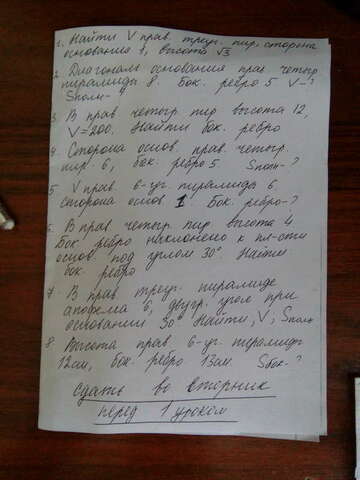 1. Найти V прав. треуг. пир., сторона
основания 1, высота √3
2. Диагональ основания прав. четыр.
пирамиды 8. Бок. ребро 5 V-?
Sполн-?
3. В прав. четыр. пир высота 12,
V=200. Найти бок. ребро
4. Сторона основ. прав. четыр.
пир. 6, бок. ребро 5. Sполн-?
5 V прав. 6-уг. пирамиды 6
сторона основ 1. Бок. ребро-?
6. В прав. четыр. пир. высота 4
Бок ребро наклонено к пл-сти
основ. под углом 30°. Найти
бок. ребро
7. В прав. треуг. пирамиде
апофема 6, двугр. угол при
основании 30° Найти, V, Sполн
8 Высота прав. 6-уг. пирамиды
12см, бок. ребро 13см. Sбок-?
Сдать во вторник
перед 1 уроком